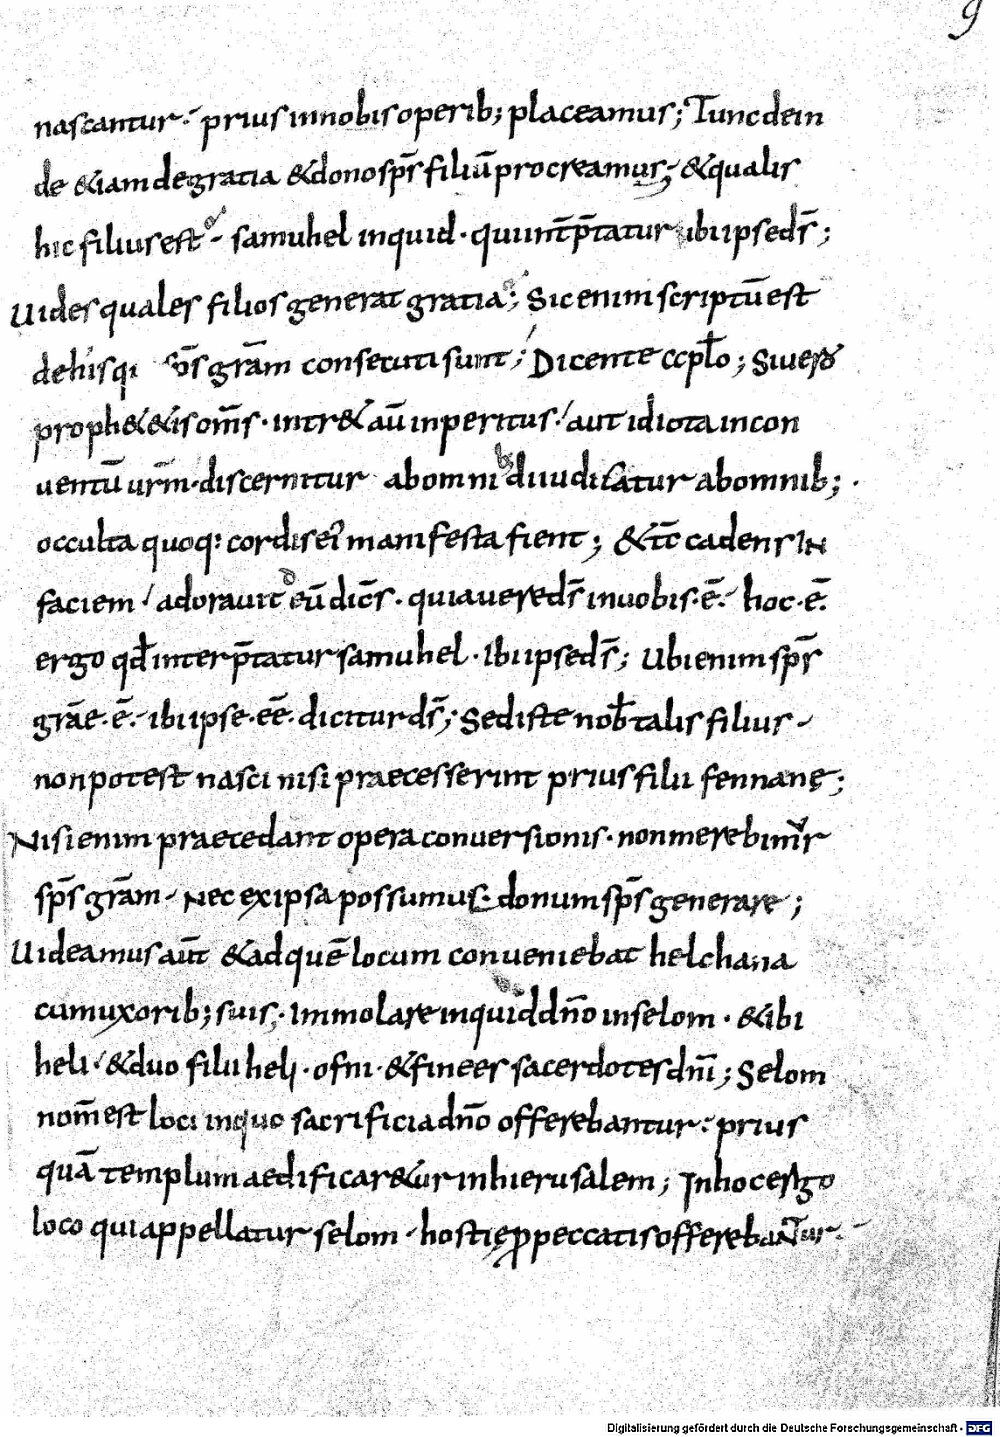 9
nascantur· prius innobis operib; placeamus; Tunc dein
de &iam degratia &dono sp̄s filiū procreamus; &qualis
hic filius est· samuhel inquid· qui int̄p̄tatur ibi ipse d̄s;
Uides quales filios generat gratia; Sic enim scriptū est
de his qi sp̄s grām consecuti sunt; Dicente apl̄o; Si uero
proph&& is om̄s· intr& aū inperitus· aut idiota incon
uentū ur̄m· discernitur abomnib; diiudicatur abomnib;
occulta quoq: cordis ei manifesta fient; &t̄c cadens IN
faciem adorauit d eū dic̄s· quia uere d̄s inuobis· ē· hoc· ē·
ergo qd̄ interp̄tatur samuhel· Ibi ipse d̄s; Ubi enim sp̄s
grāe· ē· ibi ipse· eē· dicitur d̄s; Sed iste nob̄ talis filius
non potest nasci nisi praecesserint prius filii fennane;
Nisi enim praecedant opera conuersionis· non merebimur
sp̄s grām· Nec ex ipsa possumus· donum sp̄s generare;
Uideamus aūt &ad quē locum conueniebat helchana
cum uxorib; suis· Immolare inquid dn̄o inselom· &ibi
heli· &duo filii heli· ofni· &finees sacerdotes dn̄i; Selom
nom̄ est loci inquo sacrificia dn̄o offerebantur· prius
quā templum aedificar&ur inhierusalem; In hoc ergo
loco qui appellatur selom· hostię ꝓ peccatis offerebaNTur·
Digitalisierung gefördert durch die Deutsche Forschungsgemeinschaft - DFG